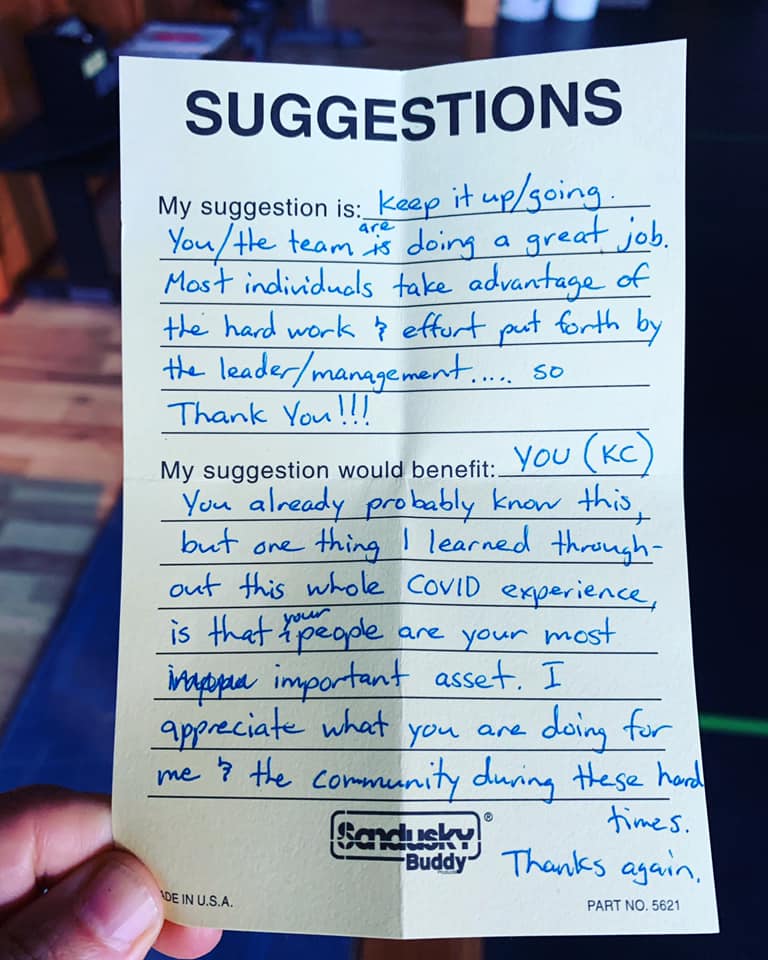 SUGGESTIONS
My suggestion is: Keep it up/going.
You/the team are is doing a great job.
Most individuals take advantage of
the hard work & effort put forth by
the leader/management..... so
Thank You!!!
My suggestion would benefit: YOU (KC)
You already probably know this,
but one thing I learned through-
out this whole COVID experience,
is that your people are your most
important asset. I
appreciate what you are doing for
me & the community during these hard
times.
Sandusky®
Buddy
Thanks again.
DE IN U.S.A.
PART NO. 5621